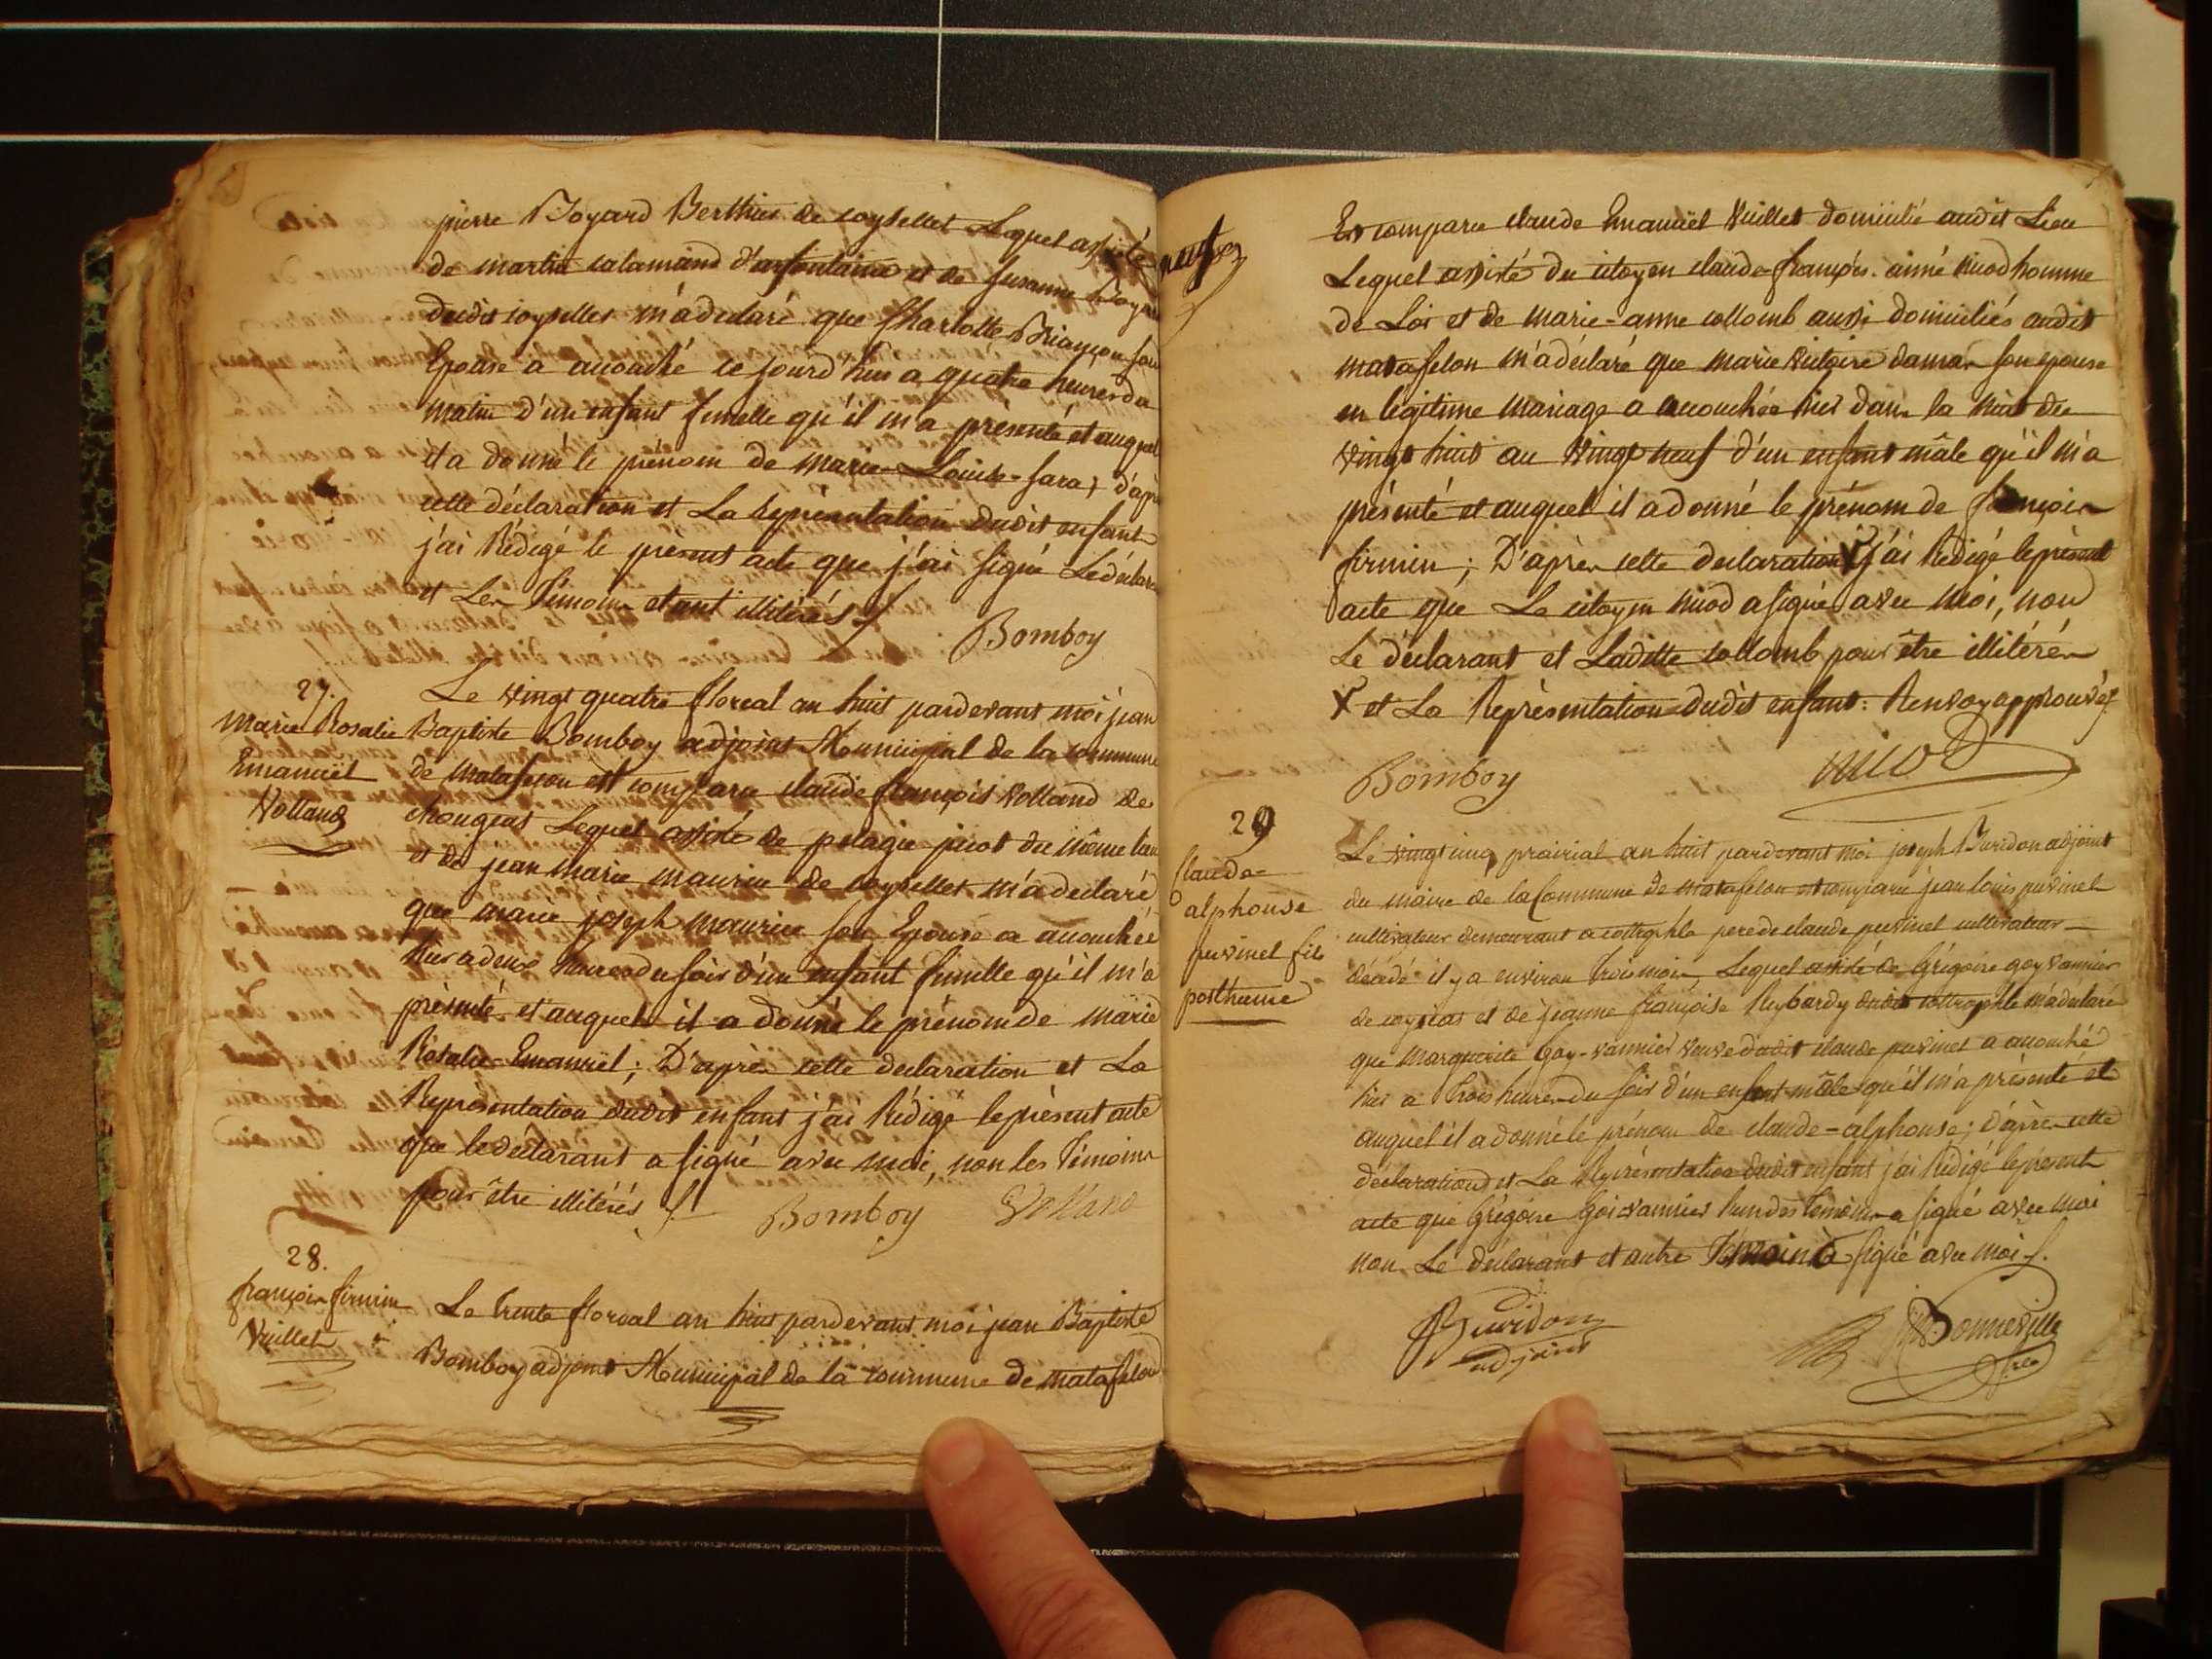 pierre Boyard Berthier de coysellet Lequel assisté
de martin calamand d'arfontaine et de Susanne Boyard
dudit coysellet m'a déclaré que Charlotte Briançon son
Epouse a accouché ce jourd'hui a quatre heures du
matin d'un enfant fimelle qu'il m'a présenté et auquel
il a donné le prénom de marie-Louise-sara; d'après
cette déclaration et La représentation dudit enfant
j'ai Rédigé le présent acte que j'ai signé Le déclarant
et Les Témoins etant illitérés
Bomboy
27.
marie Rosalie
Emanuël
Volland
Le vingt quatre floreal an huit pardevant moi jean
Baptiste Bomboy adjoint Municipal de la commune
de matafelon est comparu claude françois volland de
chougeat Lequel assisté de pelagie jacot du même lieu
et de jean marie maurice de coysellet m'a declaré
que marie joseph maurice son Epouse a accouchée
hier a deux heures du soir d'un enfant fimelle qu'il m'a
présenté et auquel il a donné le prénom de marie
Rosalie Emanuël; D'après cette declaration et La
Représentation dudit enfant j'ai Rédigé le présent acte
que le déclarant a signé avec moi, non les Témoins
pour être illitérés
Bomboy Volland
28.
françois firmin
Vuillet
Le Trente floreal an huit pardevant moi jean Baptiste
Bomboy adjoint Municipal de la commune de matafelon
neuf
Est comparu claude Emanuël Vuillet domicilié audit Lieu
Lequel assisté du citoyen claude-françois aimé nicod homme
de Loi et de marie-anne collomb aussi domiciliés audit
matafelon m'a déclaré que marie victoire damas son epouse
en légitime mariage a accouchée hier dans la nuit du
vingt huit au vingt neuf d'un enfant mâle qu'il m'a
présenté et auquel il a donné le prénom de françois
firmin; D'après cette declaration X j'ai Rédigé le présent
acte que Le citoyen nicod a signé avec moi, non
Le déclarant et Laditte collomb pour être illitérés
X et La Représentation dudit enfant: Renvoy approuvé
Bomboy nicod
29
Claude-
alphonse
puvinel fils
posthume
Le vingt cinq prairial an huit pardevant moi joseph Buridon adjoint
du maire de la Commune de matafelon est comparu jean louis puvinel
cultivateur demeurant a cottrophle pere de claude puvinel cultivateur
décédé il y a environ trois mois, Lequel assisté de Grégoire goy vannier
de coysiat et de jeanne françoise Reybardy dudit cottrophle m'a déclaré
que marguerite Goy-vannier veuve dudit claude puvinel a accouché
hier a trois heures du soir d'un enfant mâle qu'il m'a présenté et
auquel il a donné le prénom de claude-alphonse; d'après cette
déclaration et La Représentation dudit enfant j'ai Rédigé le présent
acte que Grégoire Goi-vannier l'un des témoins a signé avec moi
non Le déclarant et autre Témoin signé avec moi
Buridon
adjoint
Bonneville